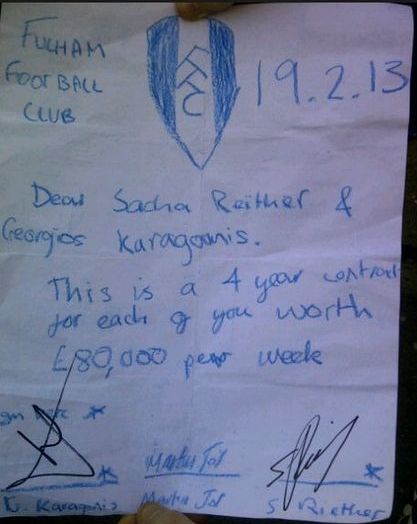 FULHAM
FOOTBALL
CLUB
FFC
19.2.13
Dear Sacha Reither &
Georgios Karagounis.
This is a 4 year contract
for each of you worth
£80,000 per week
Martin Jol
G. Karagounis
Martin Jol
S Riether